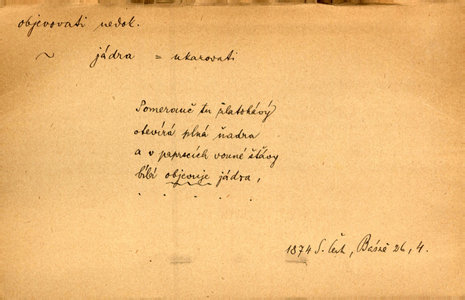 objevovati nedok.
~ jádra = ukazovati
Pomeranč tu zlatohávý
otevírá plná ňadra
a v paprscích vonné šťávy
bílá objevuje jádra,
. . . . .
1874 S. Čech, Básně 26, 4.